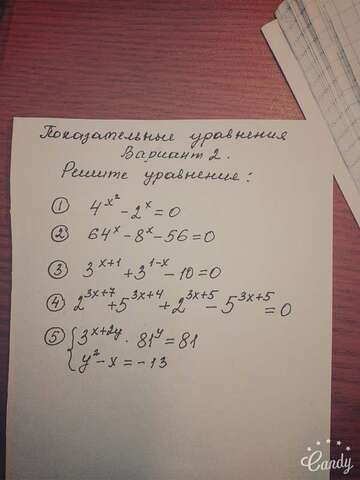 Показательные уравнения
Вариант 2.
Решите уравнения:
① 4^{x^2} - 2^x = 0
② 64^x - 8^x - 56 = 0
③ 3^{x+1} + 3^{1-x} - 10 = 0
④ 2^{3x+7} + 5^{3x+4} + 2^{3x+5} - 5^{3x+5} = 0
⑤ { 3^{x+2y} · 81^y = 81
y^2 - x = -13
Candy